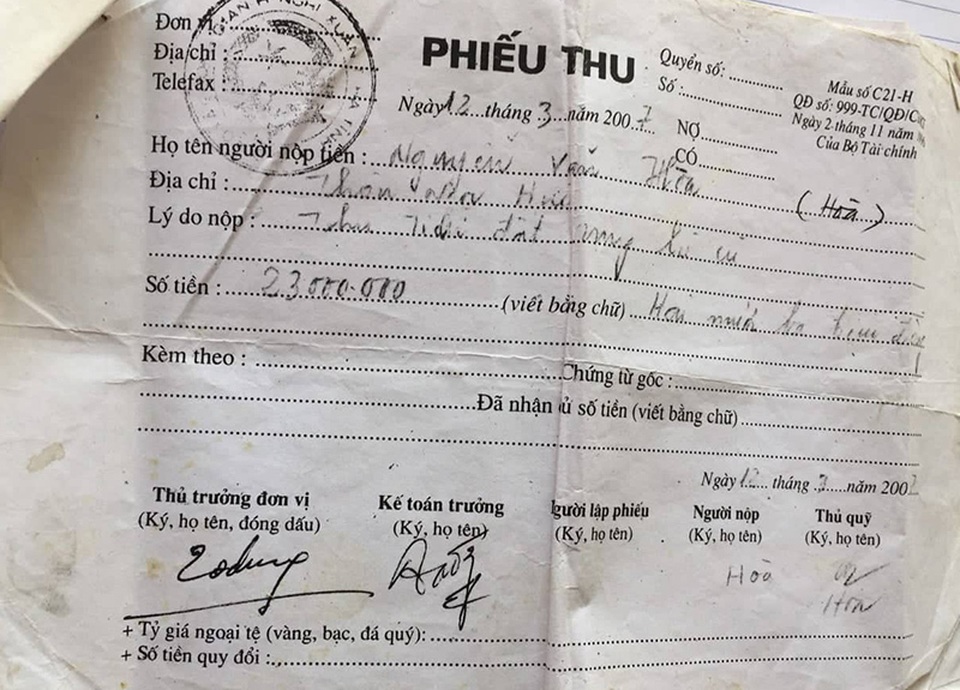 Đơn vị :
Địa chỉ :
Telefax :
NGHI XUÂN HÀ TĨNH
PHIẾU THU
Ngày 12 tháng 3 năm 2007
Quyển số:
Số :
NỢ
CÓ
Mẫu số C21-H
QĐ số: 999-TC/QĐ/
Ngày 2 tháng 11 năm
Của Bộ Tài chính
Họ tên người nộp tiền : Nguyễn Văn Hòa
Địa chỉ : Thôn (Hoà)
Lý do nộp : Thu Tiền đất cũ
Số tiền : 23.000.000 (viết bằng chữ) Hai mươi ba
Kèm theo : Chứng từ gốc :
Đã nhận ủ số tiền (viết bằng chữ)
Ngày 12 tháng 3 năm 2007
Thủ trưởng đơn vị
(Ký, họ tên, đóng dấu)
Kế toán trưởng
(Ký, họ tên)
gười lập phiếu
(Ký, họ tên)
Người nộp
(Ký, họ tên)
Hoà
Thủ quỹ
(Ký, họ tên)
+ Tỷ giá ngoại tệ (vàng, bạc, đá quý):
+ Số tiền quy đổi :